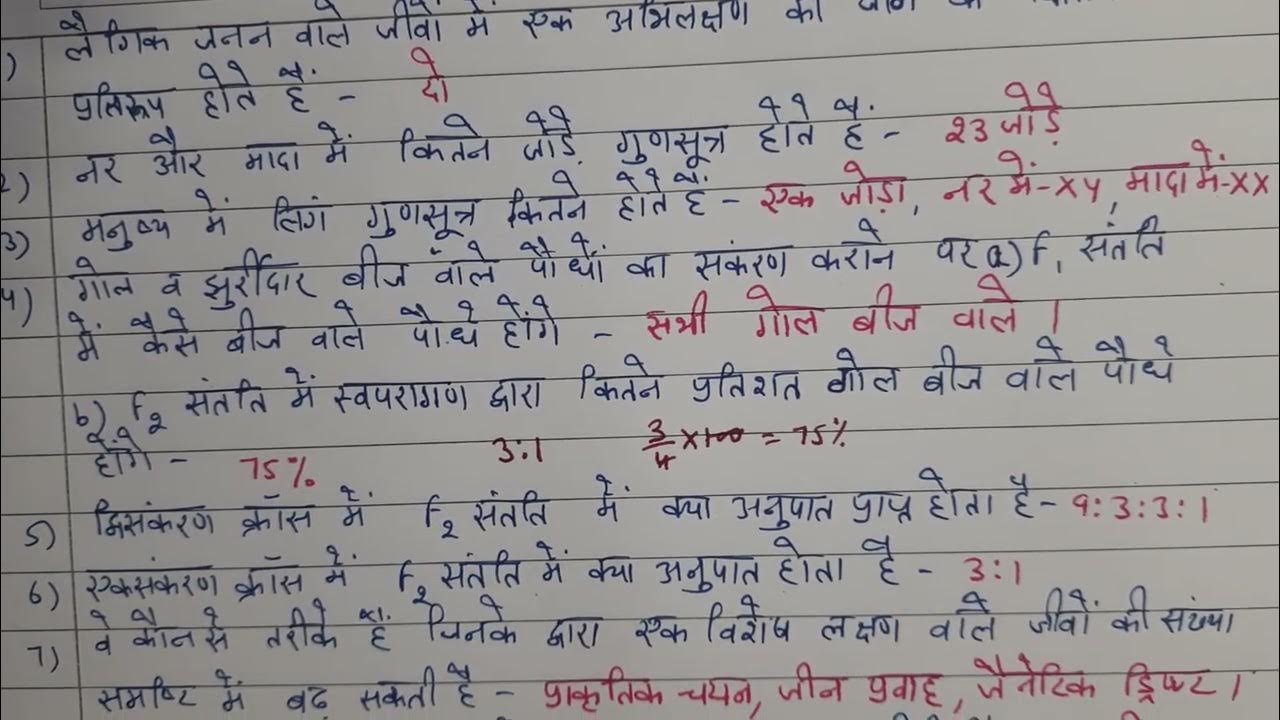 1) लैंगिक जनन वाले जीवों में एक अभिलक्षण की
प्रतिरूप होते हैं - दो
2) नर और मादा में कितने जोड़े गुणसूत्र होते हैं - 23 जोड़े
3) मनुष्य में लिंग गुणसूत्र कितने होते हैं - एक जोड़ा, नर में-XY, मादा में-XX
4) गोल व झुर्रीदार बीज वाले पौधों का संकरण कराने पर a) F₁ संतति
में कैसे बीज वाले पौधे होंगे - सभी गोल बीज वाले।
b) F₂ संतति में स्वपरागण द्वारा कितने प्रतिशत गोल बीज वाले पौधे
होंगे - 75% 3:1 3/4 × 100 = 75%
5) द्विसंकरण क्रॉस में F₂ संतति में क्या अनुपात प्राप्त होता है - 9:3:3:1
6) एकसंकरण क्रॉस में F₂ संतति में क्या अनुपात होता है - 3:1
7) वे कौन से तरीके हैं जिनके द्वारा एक विशेष लक्षण वाले जीवों की संख्या
समष्टि में बढ़ सकती है - प्राकृतिक चयन, जीन प्रवाह, जैनेटिक ड्रिफ्ट।